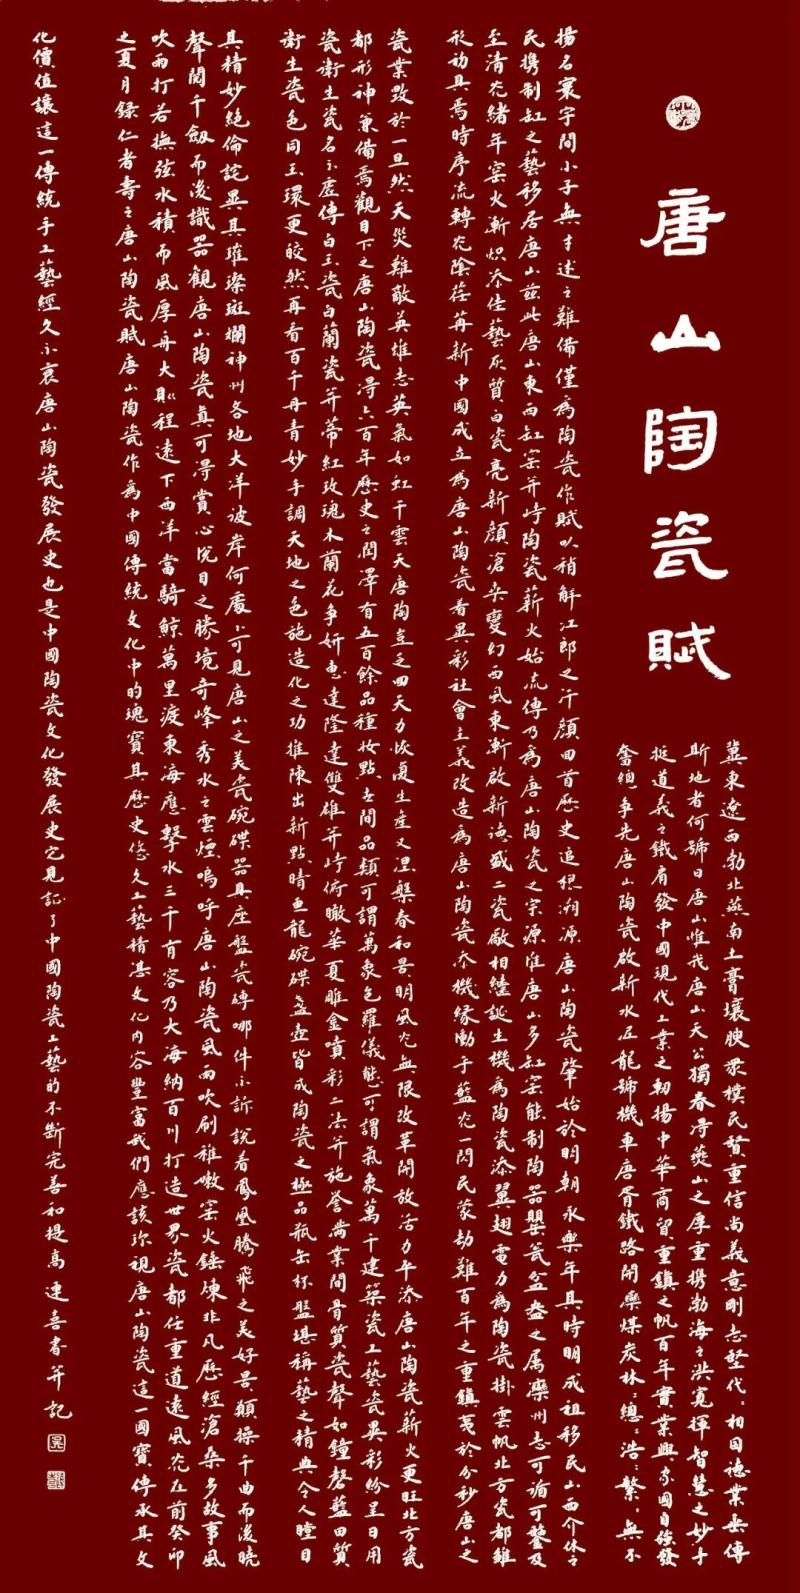 唐山陶瓷賦
冀東遼西勃北燕南土膏壤腴眾樸民賢重信尚義意剛志堅代〻相因德業長傳
斯地者何號曰唐山惟我唐山天公獨眷得燕山之厚重攜勃海之洪寬揮智慧之妙手
挺道義之鐵肩發中國現代工業之軔揚中華商貿重鎮之帆百年實業興家國自強發
奮總爭先唐山陶瓷啟新水泥龍號機車唐胥鐵路開灤煤炭林〻總〻浩〻繁〻無不
揚名寰宇間小子無才述之難備僅為陶瓷作賦以稍解江郎之汗顏回首歷史追根溯源唐山陶瓷肇始於明朝永樂年其時明成祖移民山西介休之
民攜制缸之藝移居唐山茲此唐山東西缸窯并峙陶瓷薪火始流傳乃為唐山陶瓷之宗源唯唐山多缸窯能制陶器甖瓮盆盎之屬灤州志可循可鑒及
至清光緒年窯火漸熾添佳藝灰質白瓷亮新顏滄桑變幻西風東漸啟新德盛二瓷廠相繼誕生機為陶瓷添翼翅電力為陶瓷掛雲帆北方瓷都雛
形初具焉時序流轉光陰荏苒新中國成立為唐山陶瓷著異彩社會主義改造為唐山陶瓷添機緣慟乎藍光一閃民蒙劫難百年之重鎮夷於分秒唐山之
瓷業毀於一旦然天災難敵英雄志英氣如虹干雲天唐陶豈之回天力恢復生產又涅槃春和景明風光無限改革開放活力平添唐山陶瓷薪火更旺北方瓷
都形神兼備焉觀目下之唐山陶瓷得六百年歷史之潤澤有五百餘品種妝點世間品類可謂萬象包羅儀態可謂氣象萬千建築瓷工藝瓷異彩紛呈日用
瓷衛生瓷名不虛傳白玉瓷白蘭瓷并蒂紅玫瑰木蘭花爭妍惠達隆達雙雄并峙俯瞰華夏雕金噴彩二法并施譽滿業間骨質瓷聲如鐘磬藍田質
衛生瓷色同玉環更皎然再看百千丹青妙手調天地之色施造化之功推陳出新點睛魚龍碗碟盞壺皆成陶瓷之極品瓶缶杯盤堪稱藝之精典令人瞠目
其精妙絕倫詫異其璀璨斑斕神州各地大洋彼岸何處不可見唐山之美瓷碗碟器具座盤瓷磚哪件不訴說着鳳凰騰飛之美好景願操千曲而後曉
聲閱千劍而後識器觀唐山陶瓷真可得賞心悅目之勝境奇峰秀水之雲煙嗚呼唐山陶瓷風雨吹刷稚嫩窯火錘煉非凡歷經滄桑多故事風
吹雨打若撫弦水積而風厚舟大則程遠下西洋當騎鯨萬里渡東海應擊水三千有容乃大海納百川打造世界瓷都任重道遠風光在前癸卯
之夏月錄仁者壽之唐山陶瓷賦唐山陶瓷作為中國傳統文化中的瑰寶其歷史悠久工藝精湛文化內容豐富我們應該珍視唐山陶瓷這一國寶傳承其文
化價值讓這一傳統手工藝經久不衰唐山陶瓷發展史也是中國陶瓷文化發展史它見記了中國陶瓷工藝的不斷完善和提高連喜書并記